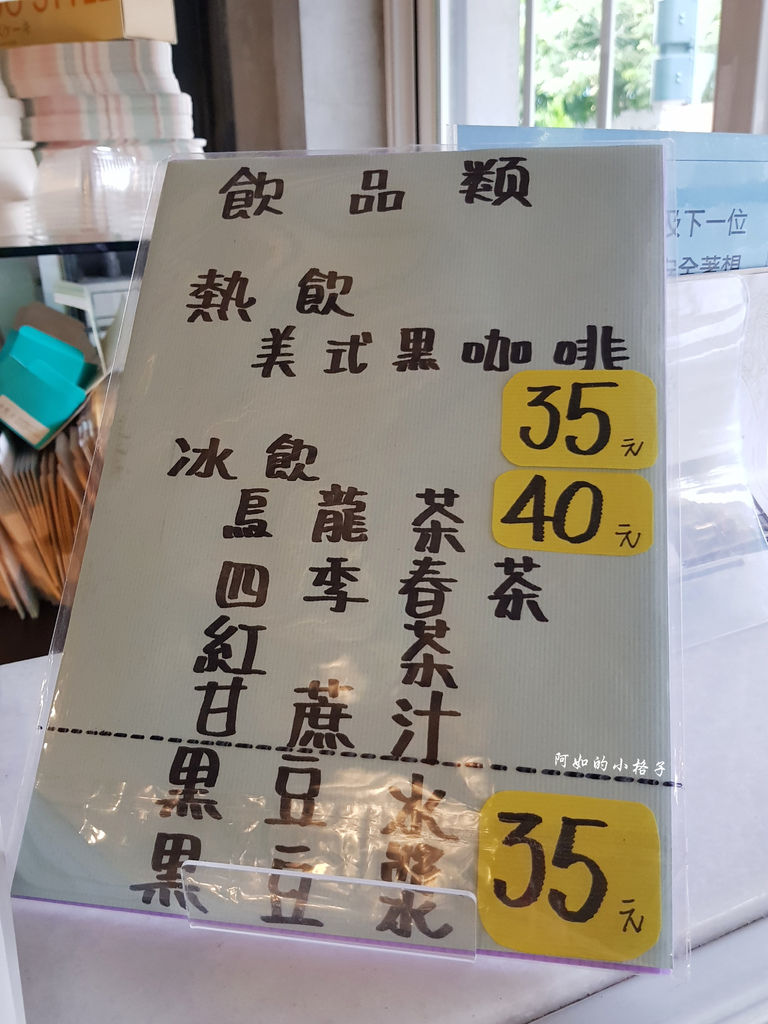 飲品類
熱飲
美式黑咖啡
35元
冰飲
40元
烏龍茶
四季春茶
紅茶
甘蔗汁
黑豆水
35元
黑豆漿
及下一位
全著想
阿如的小格子